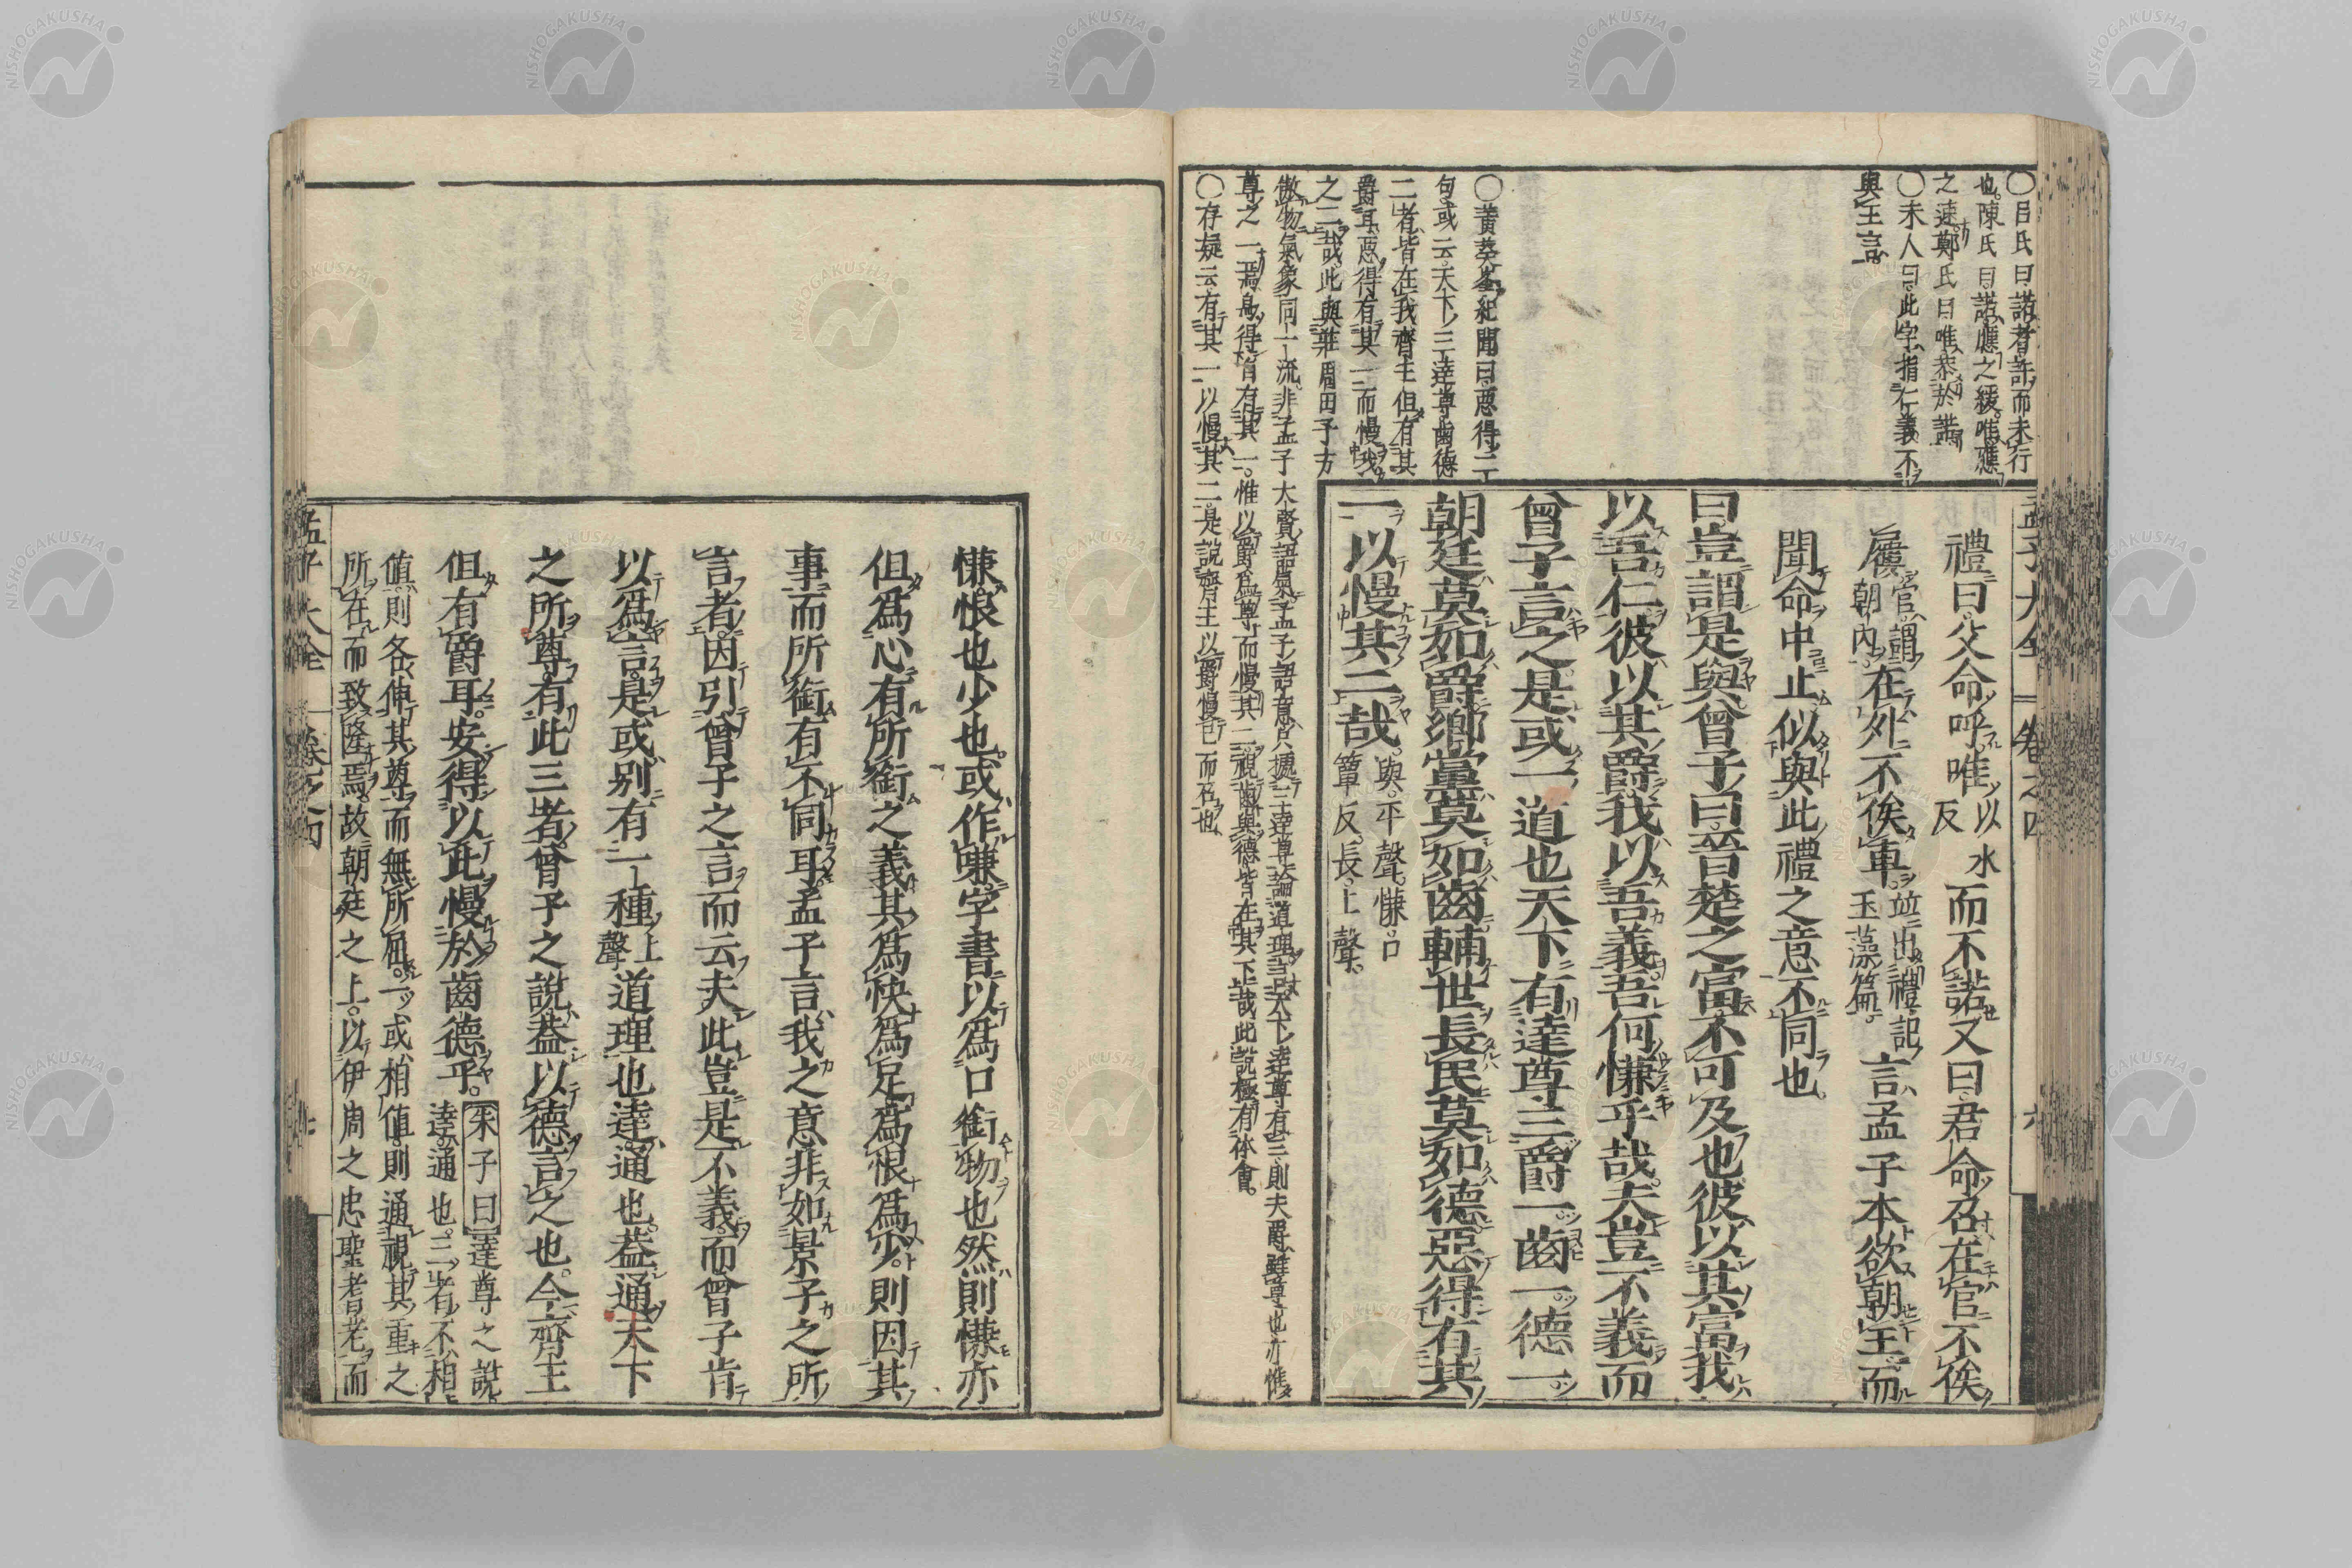 ○呂氏曰諾者許而未行
也陳氏曰諾應之緩唯應
之速鄭氏曰唯恭於諾
○未人曰此字指仁義不
與王言
○黃葵峯紀聞曰惡得二
句或云天下三達尊齒德
二者皆在我齊王但有其
爵耳惡得有其一而慢我
之二哉此與莊周田子方
傲物氣象同一流非孟子大賢語氣孟子語意只據三達尊論道理言天下達尊有三則夫爵雖尊也亦惟
尊之一焉烏得皆有其一惟以爵爲尊而慢其二視齒與德皆在其下哉此說極有体會
○存疑云有其一以慢其二是說齊王以爵慢己而召也
孟子大全 卷之四 六
禮曰父命呼唯以水反而不諾又曰君命召在官不俟
屨官謂朝內在外不俟車竝出禮記玉藻篇言孟子本欲朝王而
聞命中止似與此禮之意不同也
曰豈謂是與曾子曰晉楚之富不可及也彼以其富我
以吾仁彼以其爵我以吾義吾何慊乎哉夫豈不義而
曾子言之是或一道也天下有達尊三爵一齒一德一
朝廷莫如爵鄉黨莫如齒輔世長民莫如德惡得有其
一以慢其二哉與平聲慊口簟反長上聲
慊恨也少也或作嗛字書以爲口銜物也然則慊亦
但爲心有所銜之義其爲快爲足爲恨爲少則因其
事而所銜有不同耳孟子言我之意非如景子之所
言者因引曾子之言而云夫此豈是不義而曾子肯
以爲言是或別有一種上聲道理也達通也蓋通天下
之所尊有此三者曾子之說蓋以德言之也今齊王
但有爵耳安得以此慢於齒德乎朱子曰達尊之說達通也三者不相
値則各伸其尊而無所屈一或相値則通視其重之
所在而致隆焉故朝廷之上以伊周之忠聖耆老而
孟子大全 卷之四